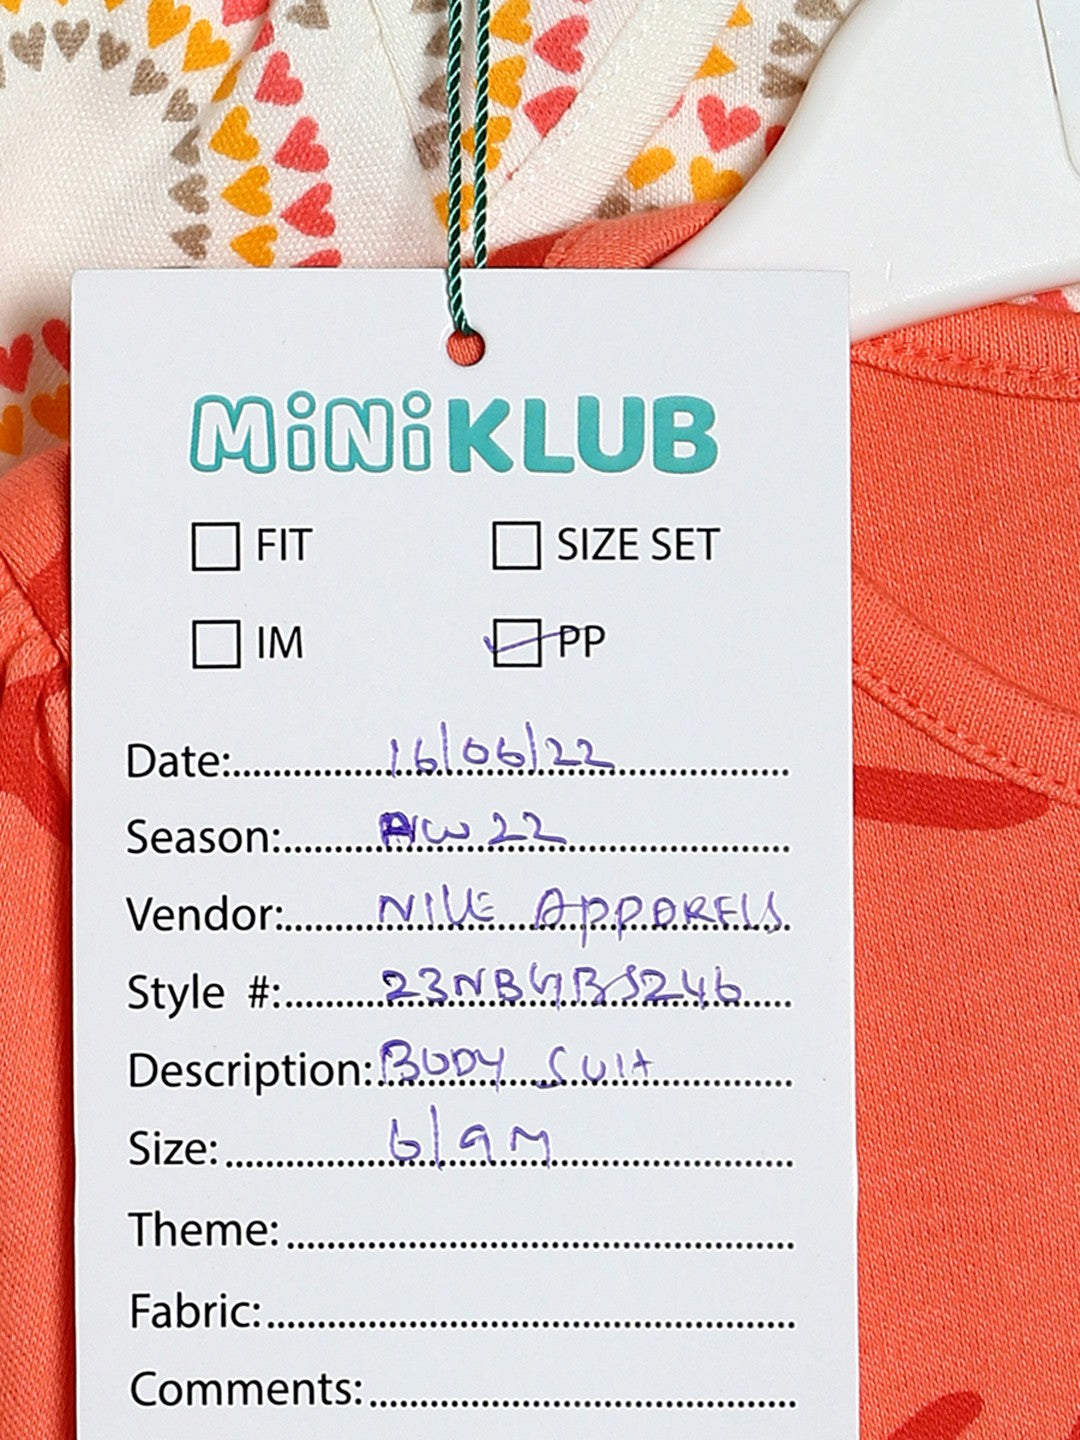 MiNiKLUB
FIT
SIZE SET
IM
PP
Date: 16/06/22
Season: AW 22
Vendor: NILE APPARELS
Style #: 23NBGBS246
Description: BODY SUIT
Size: 6/9M
Theme:
Fabric:
Comments: